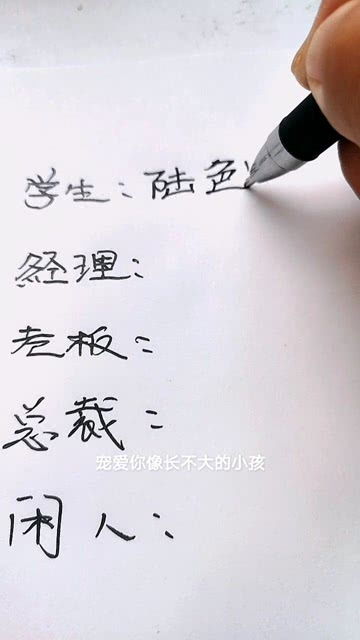 学生：陆色
経理：
老板：
总裁：
宠爱你像长不大的小孩
闲人：